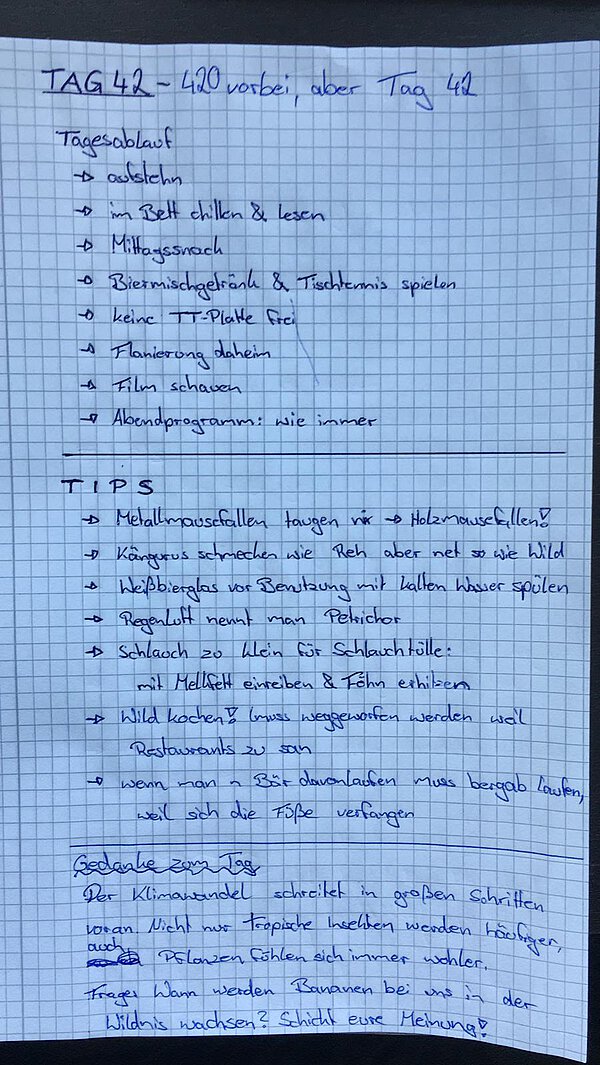 TAG 42 - 420 vorbei, aber Tag 42
Tagesablauf
→ aufstehn
→ im Bett chillen & lesen
→ Mittagssnack
→ Biermischgetränk & Tischtennis spielen
→ keine TT-Platte frei
→ Flanierung daheim
→ Film schauen
→ Abendprogramm: wie immer
TIPS
→ Metallmausefallen taugen nix → Holzmausefallen!
→ Kängurus schmecken wie Reh aber net so wie Wild
→ Weißbierglas vor Benutzung mit kalten Wasser spülen
→ Regenluft nennt man Petrichor
→ Schlauch zu klein für Schlauchtülle:
mit Melkfett einreiben & Föhn erhitzen
→ Wild kochen! (muss weggeworfen werden weil
Restaurants zu san
→ wenn man n Bär davonlaufen muss bergab laufen,
weil sich die Füße verfangen
Gedanke zum Tag
Der Klimawandel schreitet in großen Schritten
voran. Nicht nur tropische Insekten werden häufiger,
auch Pflanzen fühlen sich immer wohler.
Frage: Wann werden Bananen bei uns in der
Wildnis wachsen? Schickt eure Meinung!